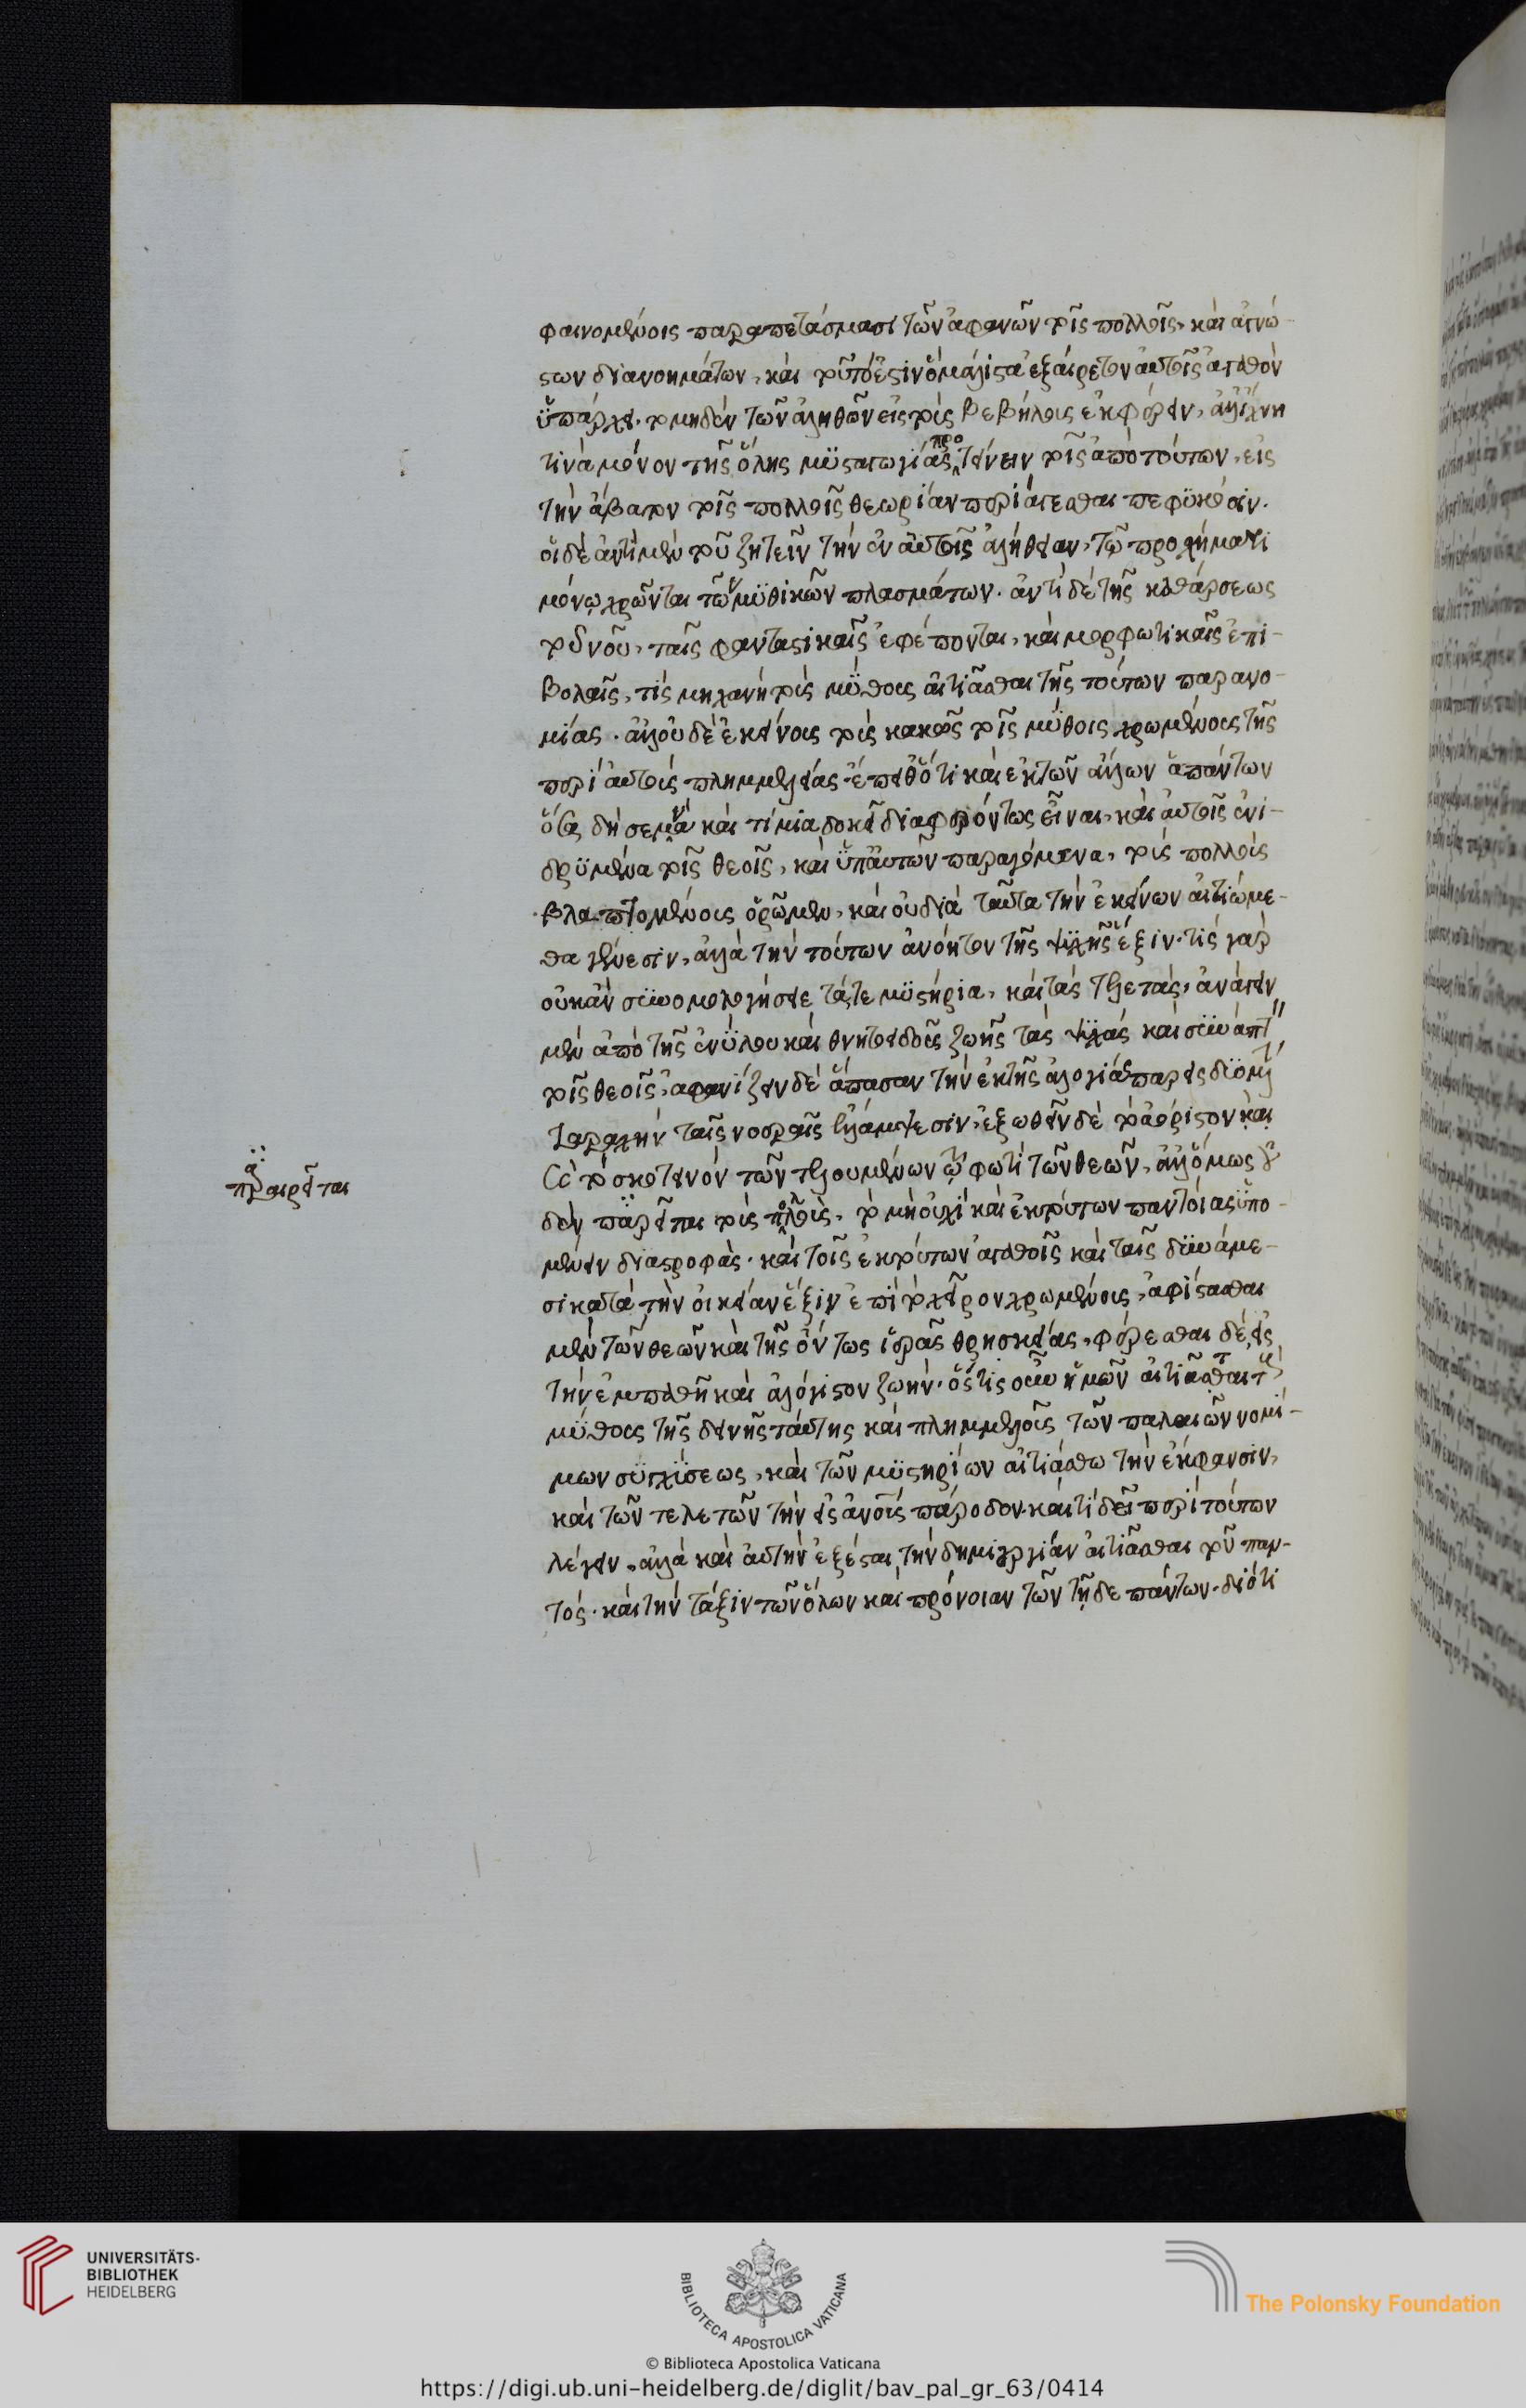 φαινομένοις παραπετάσμασι τῶν ἀφανῶν τοῖς πολλοῖς, καὶ ἀγνώ-
στων διανοημάτων, καὶ τοῦτό ἐστιν ὃ μάλιστα ἐξαίρετον αὐτοῖς ἀγαθὸν
ὑπάρχει. τὸ μηδὲν τῶν ἀληθῶν εἰς τοὺς βεβήλους ἐκφέρειν, ἀλλ' ἴχνη
τινὰ μόνον τῆς ὅλης μυσταγωγίας προτείνειν τοῖς ἀπὸ τούτων, εἰς
τὴν ἄβατον τοῖς πολλοῖς θεωρίαν περιάγεσθαι πεφυκόσιν.
οἱ δὲ ἀντὶ μὲν τοῦ ζητεῖν τὴν ἐν αὐτοῖς ἀλήθειαν, τῷ προσχήματι
μόνῳ χρῶνται τῶν μυθικῶν πλασμάτων. ἀντὶ δὲ τῆς καθάρσεως
τοῦ νοῦ, ταῖς φανταστικαῖς ἐφέπονται, καὶ μορφωτικαῖς ἐπι-
βολαῖς, τίς μηχανὴ τοὺς μύθους αἰτιᾶσθαι τῆς τούτων παρανο-
μίας. ἀλλ' οὐ δὲ ἐκείνους τοὺς κακῶς τοῖς μύθοις χρωμένους τῆς
περὶ αὐτοὺς πλημμελείας. ἔπειθ' ὅτι καὶ ἐκ τῶν ἄλλων ἁπάντων
ὅσα δὴ σεμνὰ καὶ τίμια δοκεῖ διαφερόντως εἶναι, καὶ αὐτοῖς ἐνι-
δρυμένα τοῖς θεοῖς, καὶ ὑπ' αὐτῶν παραγόμενα, τοὺς πολλοὺς
βλαπτομένους ὁρῶμεν, καὶ οὐ διὰ ταῦτα τὴν ἐκείνων αἰτιώμε-
θα γένεσιν, ἀλλὰ τὴν τούτων ἀνόητον τῆς ψυχῆς ἕξιν. τίς γὰρ
οὐκ ἂν συνομολογήσειε τά τε μυστήρια, καὶ τὰς τελετάς, ἀνάγειν
μὲν ἀπὸ τῆς ἐνύλου καὶ θνητοειδοῦς ζωῆς τὰς ψυχάς καὶ συνάπτ
τοῖς θεοῖς, ἀφανίζειν δὲ ἅπασαν τὴν ἐκ τῆς ἀλογίας παρεισδυομέ
ταραχὴν ταῖς νοεραῖς ἐλλάμψεσιν, ἐξωθεῖν δὲ τὸ ἀόριστον καὶ
τὸ σκοτεινὸν τῶν τελουμένων τῷ φωτὶ τῶν θεῶν, ἀλλ' ὅμως οὐ
δὲν παραιρεῖται τοὺς πολλοὺς, τὸ μὴ οὐχὶ καὶ ἐκ τούτων παντοίας ὑπο-
μένειν διαστροφάς. καὶ τοῖς ἐκ τούτων ἀγαθοῖς καὶ ταῖς δυνάμε-
σι κατὰ τὴν οἰκείαν ἕξιν ἐπὶ τὸ χεῖρον χρωμένους, ἀφίστασθαι
μὲν τῶν θεῶν καὶ τῆς ὄντως ἱερᾶς θρησκείας, φέρεσθαι δὲ, εἰς
τὴν ἐμπαθῆ καὶ ἀλόγιστον ζωήν. ὅστις οὖν ἡμῶν αἰτιᾶται τοὺς
μύθους τῆς δεινῆς ταύτης καὶ πλημμελοῦς τῶν παλαιῶν νομί-
μων συγχύσεως, καὶ τῶν μυστηρίων αἰτιάσθω τὴν ἔκφανσιν,
καὶ τῶν τελετῶν τὴν εἰς ἀνους πάροδον. καὶ τί δεῖ περὶ τούτων
λέγειν, ἀλλὰ καὶ αὐτὴν ἐξέσται τὴν δημιουργίαν αἰτιᾶσθαι τοῦ παν-
τός. καὶ τὴν τάξιν τῶν ὅλων καὶ πρόνοιαν τῶν τῇδε πάντων. διότι
παραιρεῖται
UNIVERSITÄTS-
BIBLIOTHEK
HEIDELBERG
BIBLIOTECA APOSTOLICA VATICANA
The Polonsky Foundation
© Biblioteca Apostolica Vaticana
https://digi.ub.uni-heidelberg.de/diglit/bav_pal_gr_63/0414